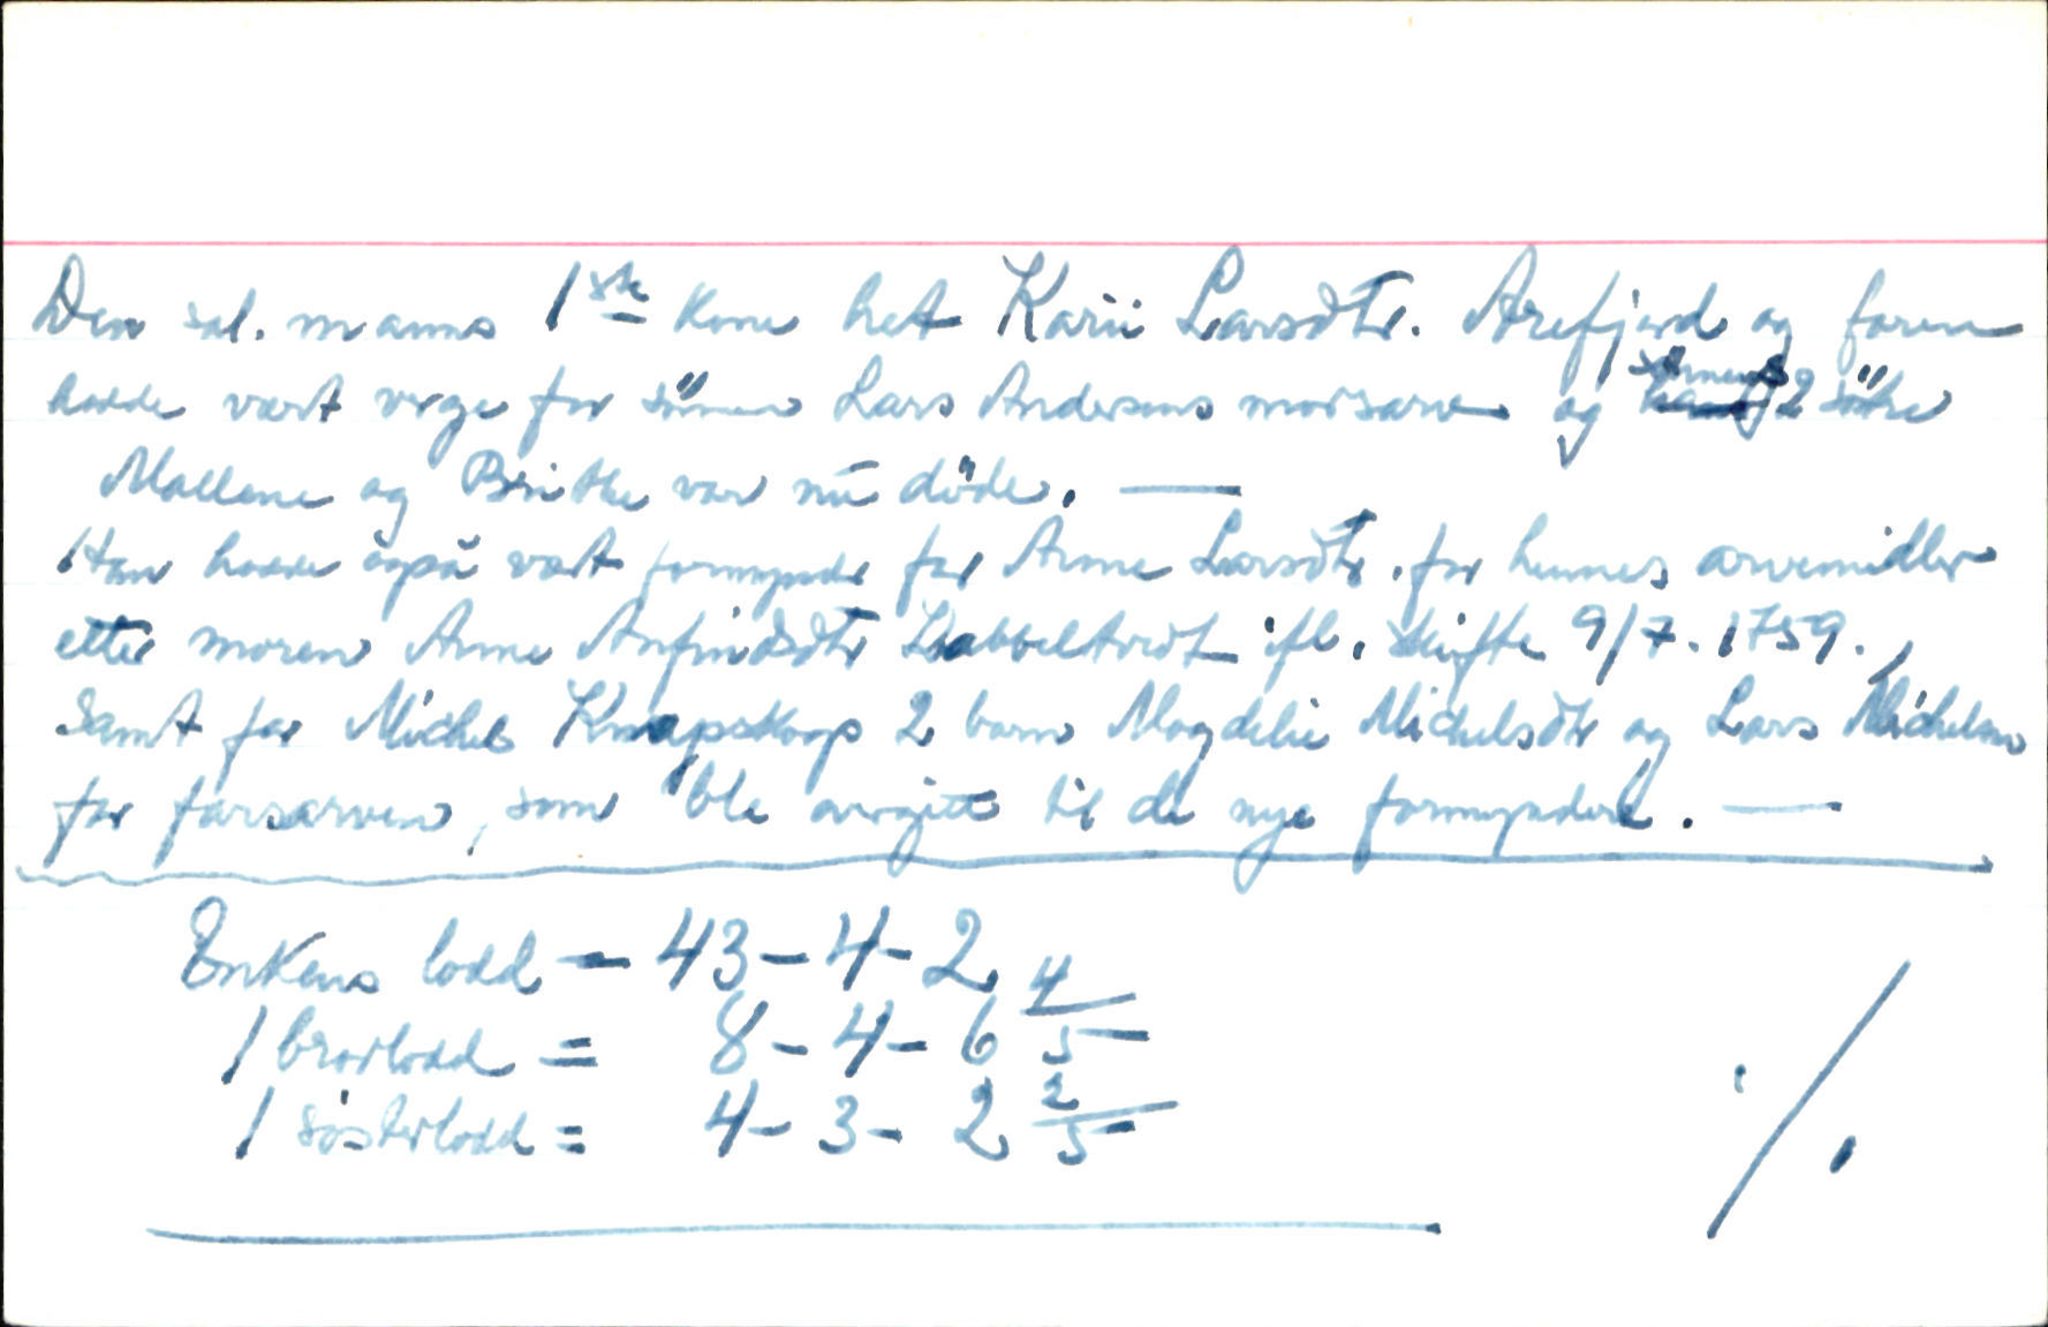 Den sal. manns 1ste kone het Kari Larsdtr. Arefjord og faren
hadde vært verge for sönnen Lars Andersens morsarv og 2 söstre
Mallene og Brithe var nu döde. —
Han hadde også vært formynder for Anne Larsdtr. for hennes arvemidler
etter moren Anne Anfindsdtr ifl. skifte 9/7. 1759.,
samt for Michel Knapskog 2 barn Magdelie Michelsdtr og Lars Michelsen
for farsarven, som ble overgitt til de nye formyndere. —
Enkens lodd = 43 - 4 - 2
1 brorlodd = 8 - 4 - 6 4/5
1 sösterlodd = 4 - 3 - 2 2/5
./.